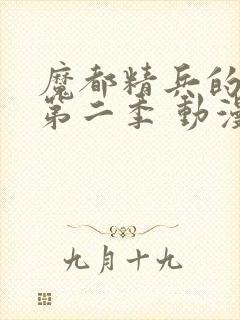 魔都精兵的
第二季 動漫
九月十九